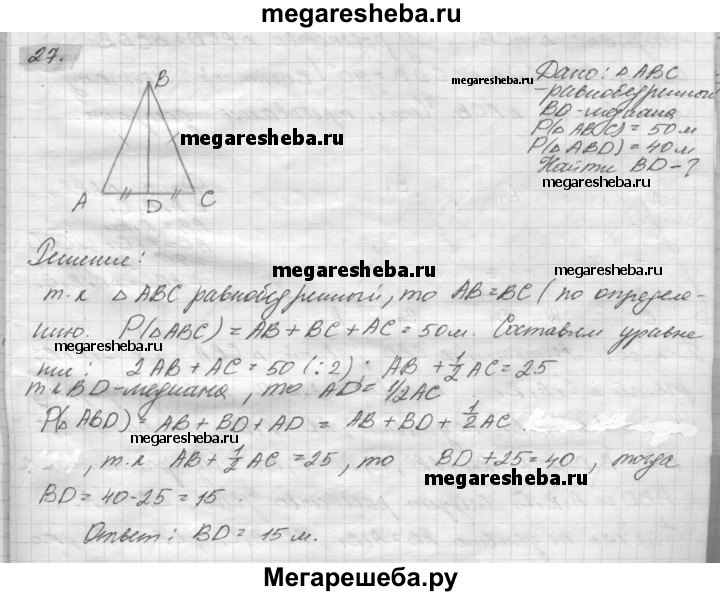 megaresheba.ru
27.
B
A
D
C
Дано: △ ABC
- равнобедренный
BD - медиана
P(△ ABC) = 50 м
P(△ ABD) = 40 м
Найти BD - ?
megaresheba.ru
megaresheba.ru
megaresheba.ru
Решение:
megaresheba.ru
megaresheba.ru
т.к △ ABC равнобедренный, то AB = BC ( по определе-
нию. P(△ABC) = AB + BC + AC = 50 м. Составим уравне
megaresheba.ru
ние: 2 AB + AC = 50 (:2) ; AB + 1/2 AC = 25
т.к BD - медиана, то AD = 1/2 AC
P(△ ABD) = AB + BD + AD = AB + BD + 1/2 AC
megaresheba.ru
, т.к AB + 1/2 AC = 25, то BD + 25 = 40, тогда
megaresheba.ru
BD = 40 - 25 = 15 .
Ответ: BD = 15 м.
megaresheba.ru
Мегарешеба.ру